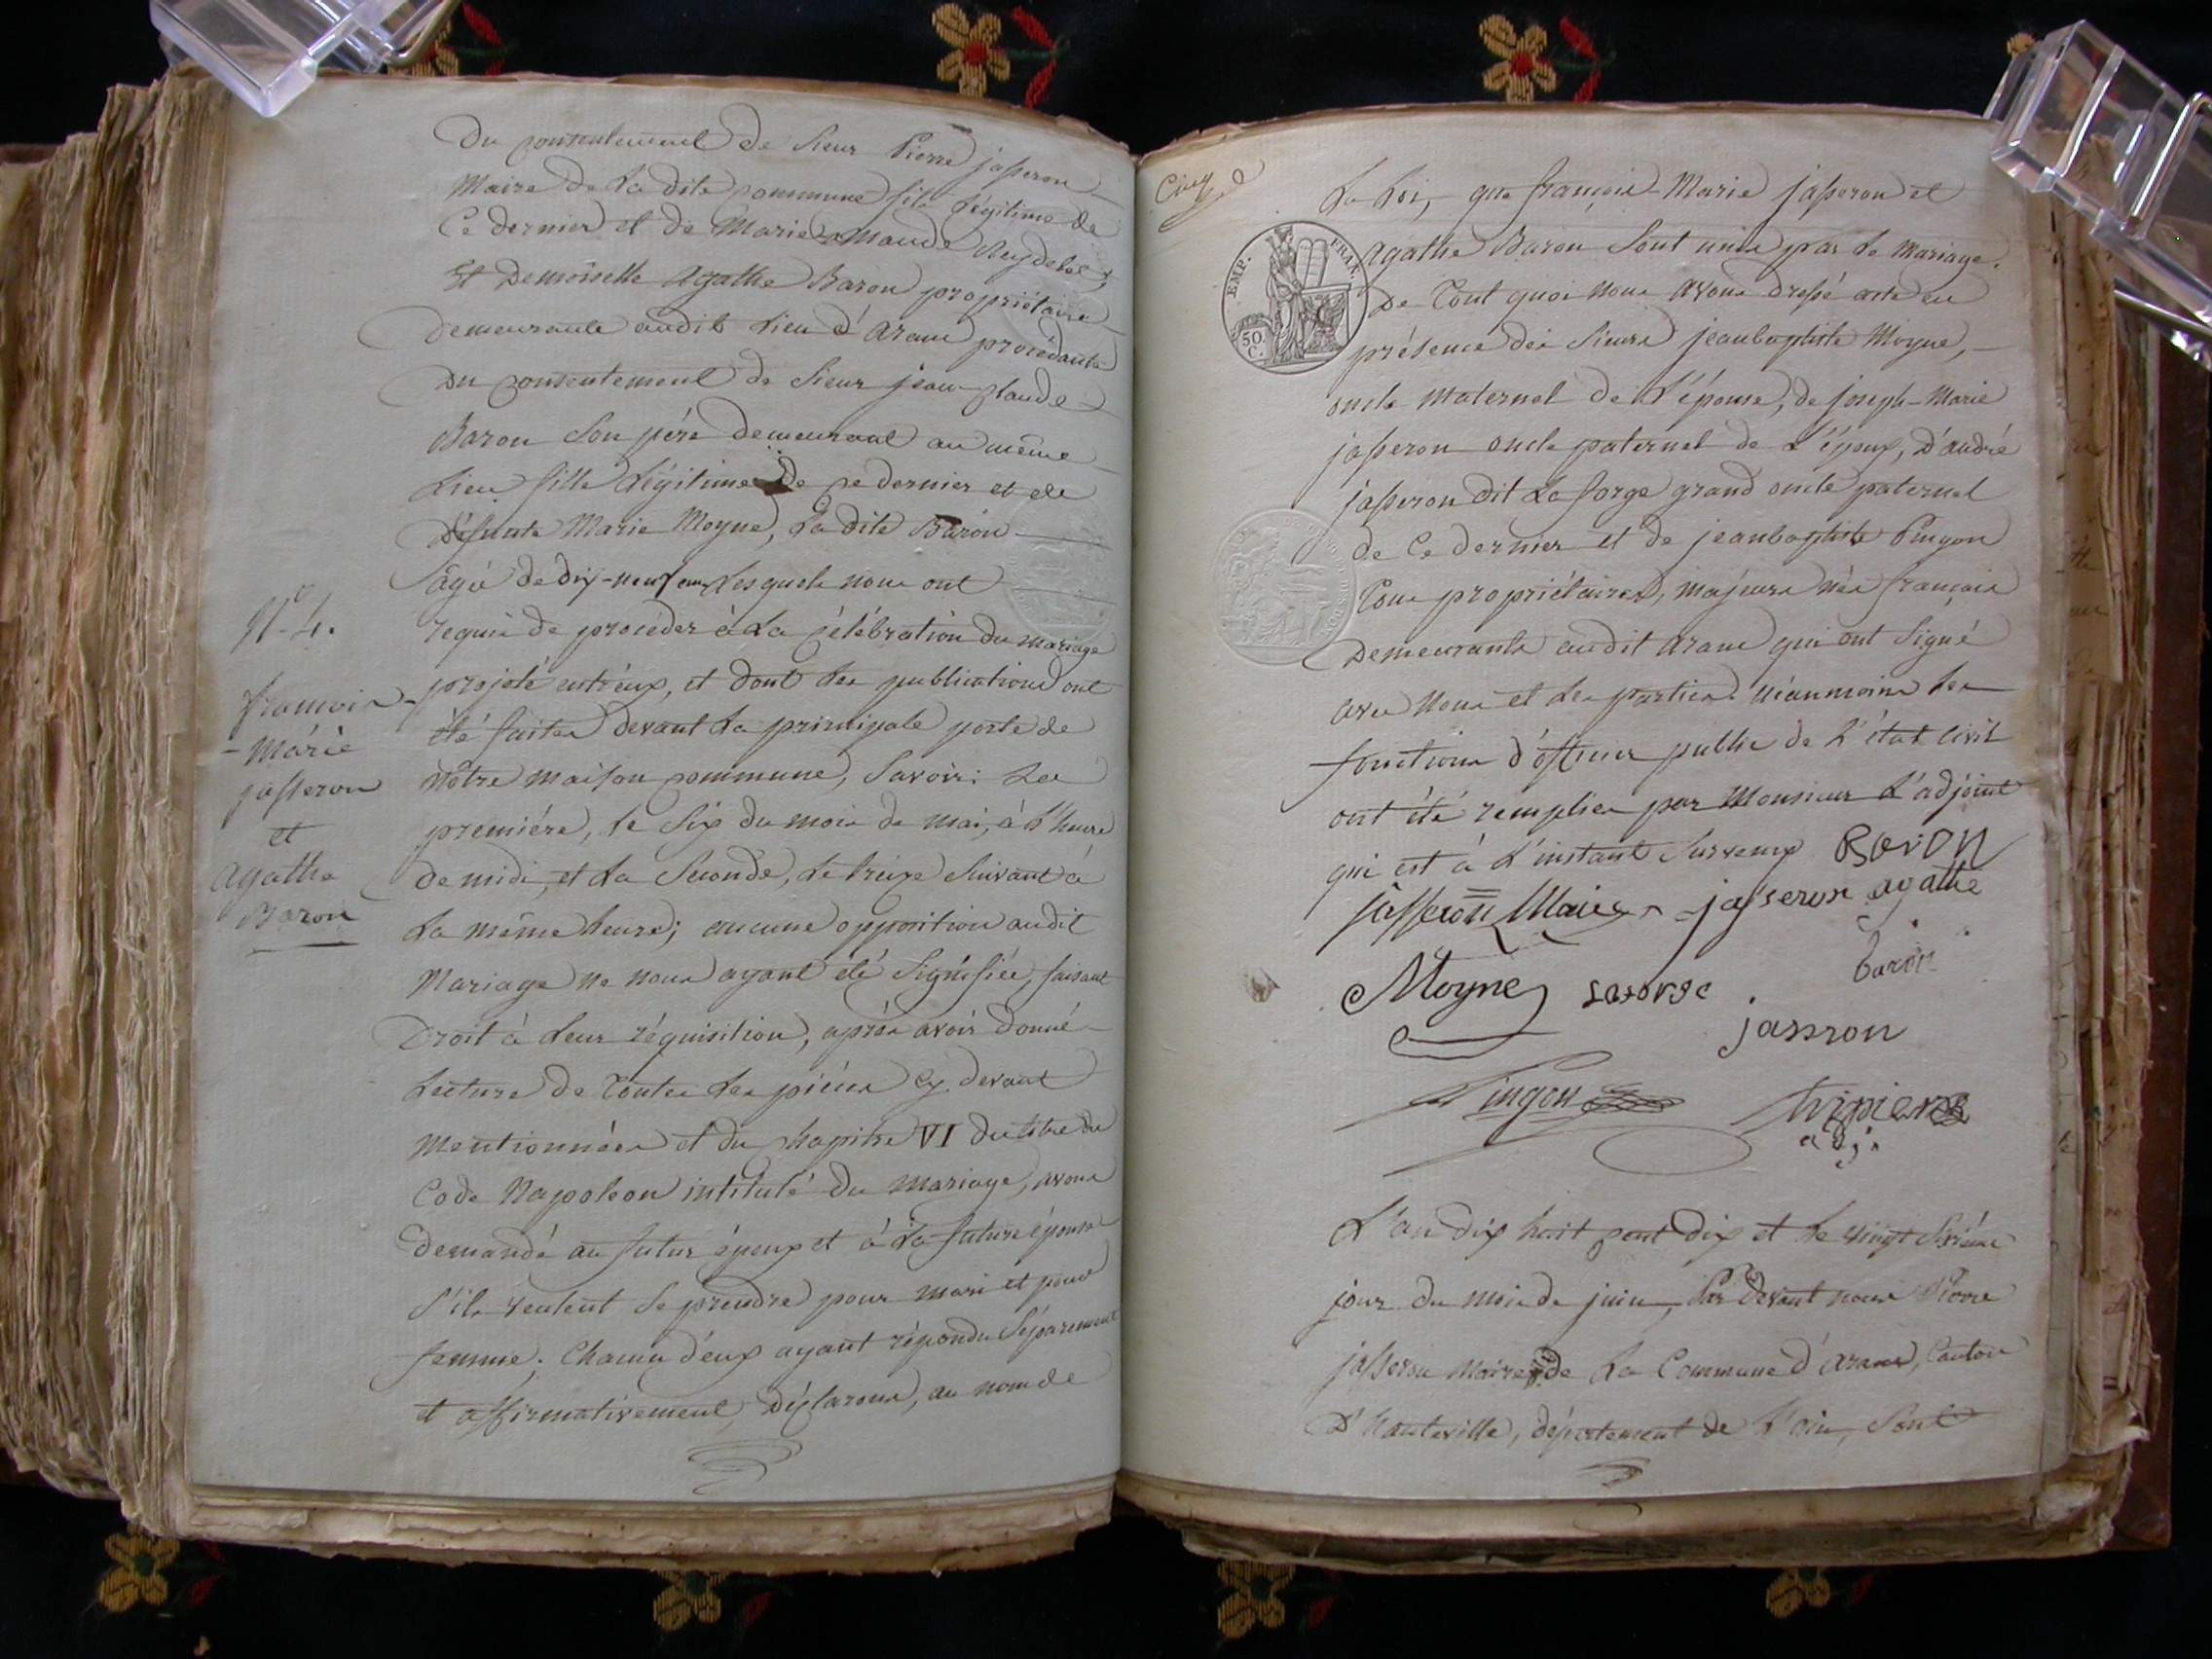 du consentement de Sieur Pierre jasseron
Maire de la dite commune fils légitime de
Ce dernier et de Marie Reydelet,
Et Demoiselle Agathe Baron propriétaire
demeurante audit lieu d'aranc procédante
du consentement de Sieur jean-claude
Baron son père demeurant au même
lieu fille légitime de ce dernier et de
défunte Marie Moyne, la dite Baron
âgée de dix-neuf ans Lesquels nous ont
N° 4.
requis de procéder à la célébration du mariage
projeté entr'eux, et dont les publications ont
françois-
-marie
jasseron
et
agathe
Baron
été faites devant la principale porte de
nôtre maison commune, Savoir: La
première, le Six du mois de mai, à l'heure
de midi, et la Seconde, le treize Suivant à
la même heure; aucune opposition audit
Mariage ne nous ayant été Signifiée, faisant
Droit à leur réquisition, après avoir donné
lecture de toutes les pièces cy devant
mentionnées et du chapitre VI du titre du
Code Napoleon intitulé du mariage, avons
demandé au futur époux et à la future épouse
s'ils veulent se prendre pour mari et pour
femme; Chacun d'eux ayant répondu Séparement
et affirmativement, déclarons, au nom de
Cinq
La Loi, que françois-Marie jasseron et
EMP. FRAN.
50. C.
Agathe Baron Sont unis par le mariage.
De tout quoi nous avons dressé acte en
présence des Sieurs jeanbaptiste Moyne,
oncle maternel de l'épouse, de joseph-Marie
jasseron oncle paternel de l'époux, d'andré
jasseron dit La forge grand oncle paternel
de ce dernier et de jeanbaptiste Pingon
Tous propriétaires, majeurs nés français
Demeurants audit aranc qui ont Signé
avec nous et les parties. néanmoins les
fonctions d'officier public de l'état civil
ont été remplies par Monsieur l'adjoint
qui est à l'instant Survenu Baron
jasseron Maire jasseron agathe
baron
Moyne Laforge
jassron
Pingon
adj.
L'an dix huit cent dix et le vingt Sixième
jour du mois de juin, Par devant nous Pierre
jasseron Maire de la Commune d'aranc, Canton
D'hauteville, département de l'ain, Sont